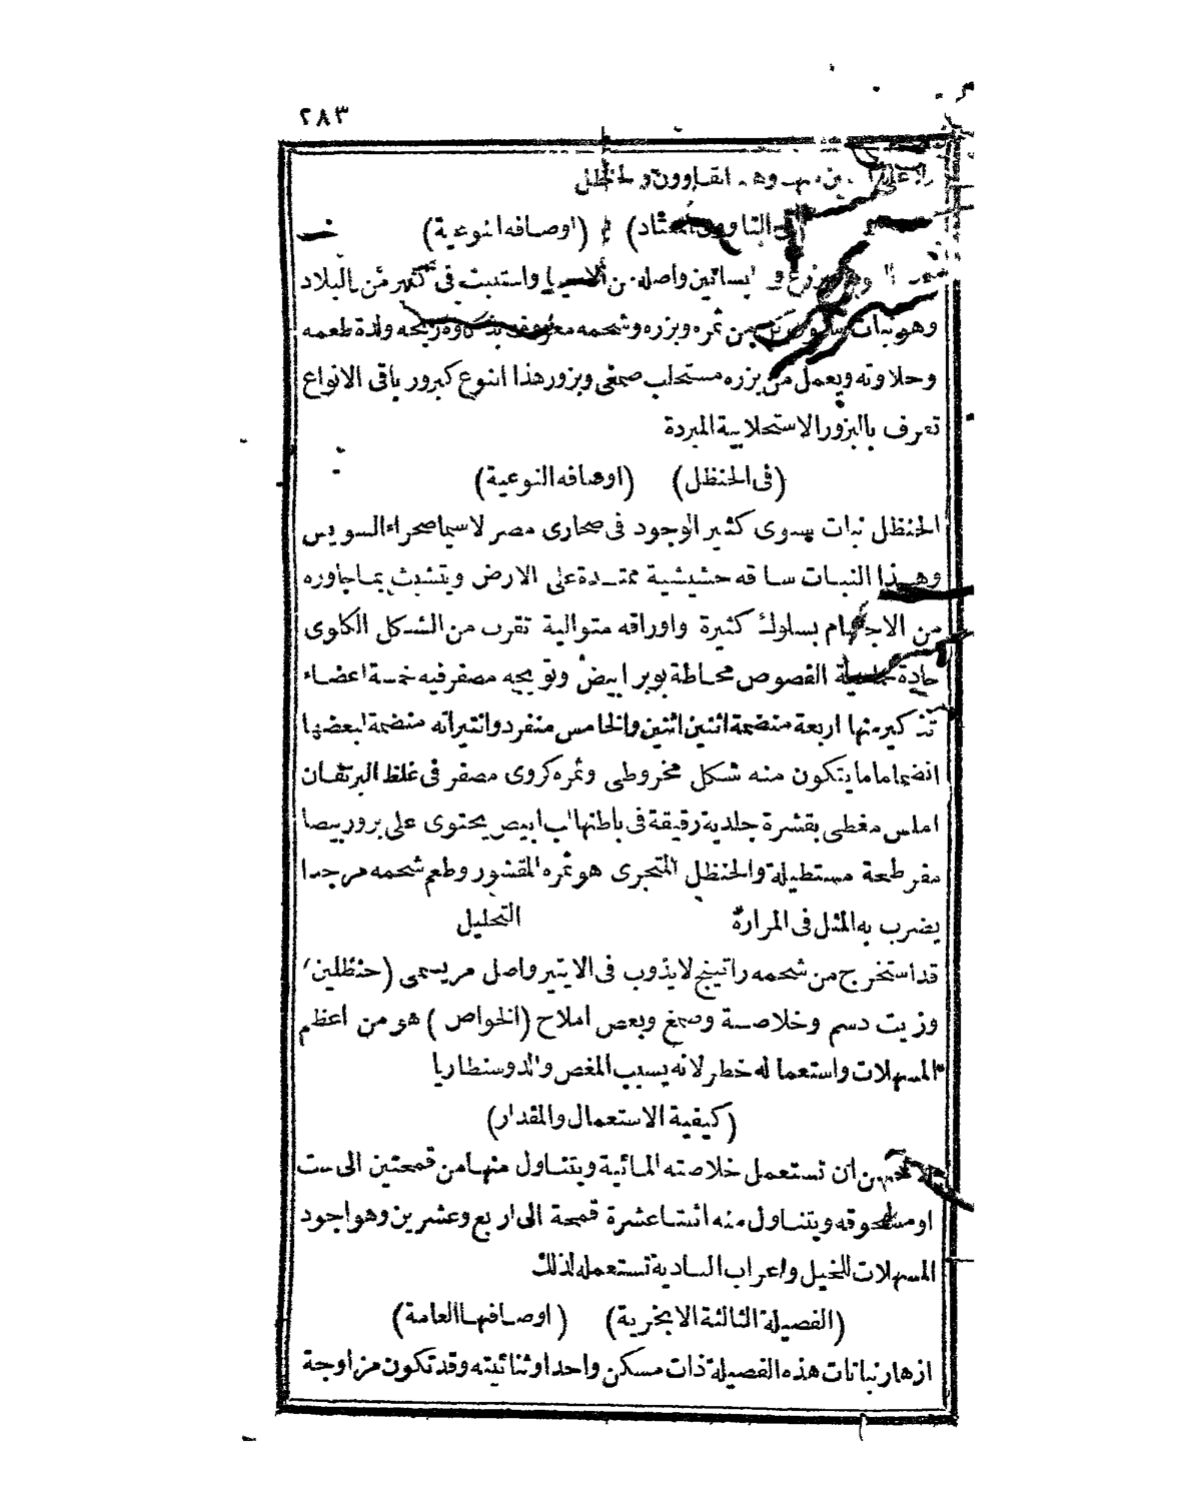 ٢٨٣
وهـ القاوون والحنظل
(فى القاوون المعتاد) (اوصافه النوعية)
يزرع فى البساتين واصله من الاسيا واستنبت فى كثير من البلاد
وهو نبات سنوى من ثمره وبزره وشحمه معروف بذكاوة ريحه ولذة طعمه
وحلاوته ويعمل من بزره مستحلب صمغى وبزور هذا النوع كبزور باقى الانواع
تعرف بالبزور الاستحلابية المبردة
(فى الحنظل) (اوصافه النوعية)
الحنظل نبات سنوى كثير الوجود فى صحارى مصر لاسيما صحراء السويس
وهـذا النبـات ساقه حشيشية ممتـدة على الارض ويتشبث بمـاجاوره
من الاجسام بسلوك كثيرة واوراقه متوالية تقرب من الشكل الكلوى
حادة الفصوص محاطة بوبر ابيض وتويجه مصفر فيه خمسة اعضاء
تذكير منها اربعة منضمة اثنين اثنين والخامس منفرد وانتيراته منضمة لبعضها
انضماما ما يتكون منه شكل مخروطى وثمره كروى مصفر فى غلظ البرتقان
املس مغطى بقشرة جلدية رقيقة فى باطنها لب ابيض يحتوى على بزور بيضا
مفرطحة مستطيلة والحنظل المتجرى هو ثمره المقشور وطعم شحمه مر جدا
يضرب به المثل فى المرارة التحليل
قد استخرج من شحمه راتينج لا يذوب فى الايتير واصل مر يسمى (حنظلين)
وزيت دسم وخلاصـة وصمغ وبعض املاح (الخواص) هو من اعظم
المسهلات واستعماله خطر لانه يسبب المغص والدوسنطاريا
(كيفية الاستعمال والمقدار)
ان تستعمل خلاصته المـائية ويتنـاول منهـا من قمحتين الى ست
او مسحوقه ويتنـاول منه اثنتـا عشرة قمحة الى اربع وعشرين وهو اجود
المسهلات للخيل واعراب البـادية تستعمله لذلك
(الفصيلة الثالثة الانجرية) (اوصـافهـا العامة)
ازهار نباتات هذه الفصيلة ذات مسكن واحد او ثنائيته وقد تكون مزاوجة